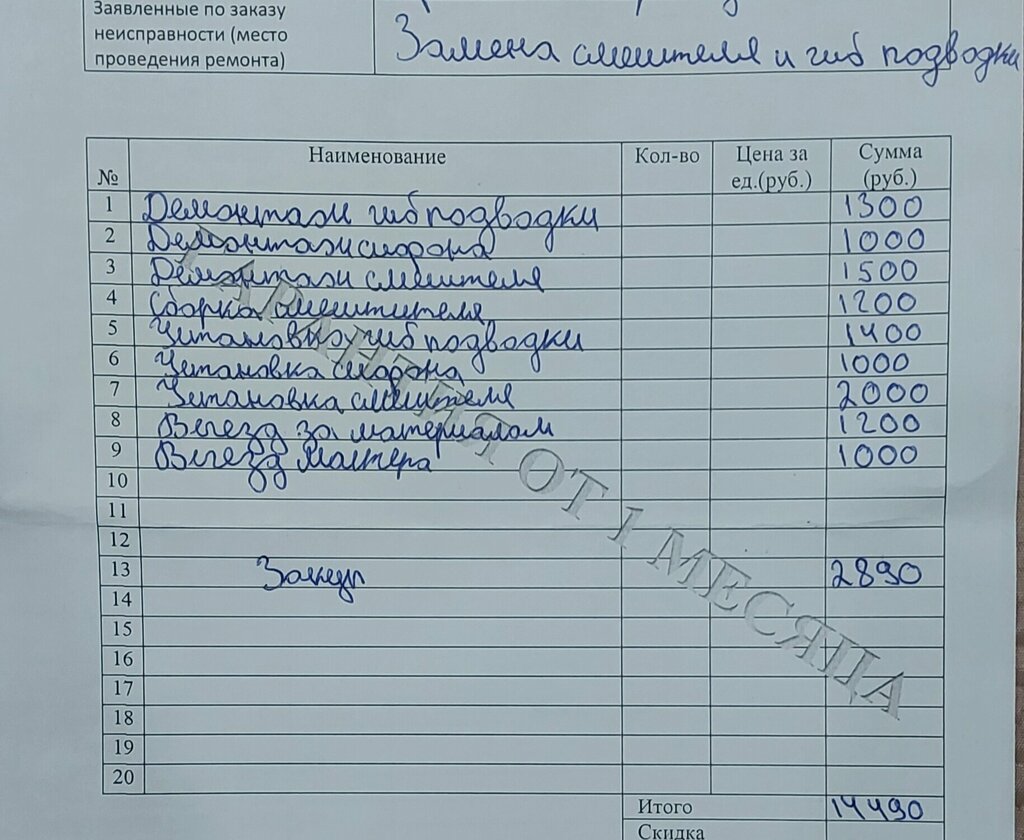 Заявленные по заказу
неисправности (место
проведения ремонта)
Замена смешителя и гиб подводки
№ Наименование Кол-во Цена за ед.(руб.) Сумма (руб.)
1 Демонтаж гиб подводки 1300
2 Демонтаж сифона 1000
3 Демонтаж смешителя 1500
4 Сборка смештителя 1200
5 Установка гиб подводки 1400
6 Установка сифона 1000
7 Установка смешителя 2000
8 Выезд за материалом 1200
9 Выезд мастера 1000
10
11
12
13 Закуп 2890
14
15
16
17
18
19
20
Итого 14490
Скидка
ГАРАНТИЯ ОТ 1 МЕСЯЦА